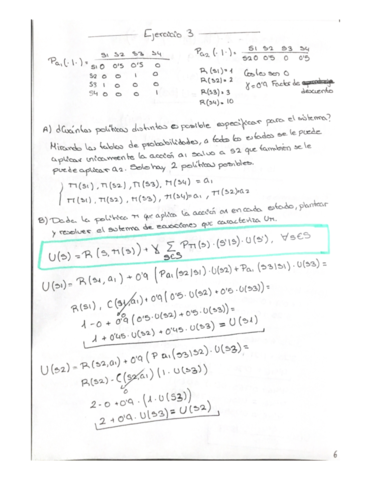 Ejercicio 3
Pa1(·|·) = S1 S2 S3 S4
S1 0 0'5 0'5 0
S2 0 0 1 0
S3 0 0 0 1
S4 0 0 0 1
Pa2(·|·) = S1 S2 S3 S4
S2 0 0'5 0 0'5
R(S1) = 1
R(S2) = 2
R(S3) = 3
R(S4) = 10
Costes son 0
γ = 0'9 Factor de descuento
A) ¿Cuántas políticas distintas es posible especificar para el sistema?
Mirando las tablas de probabilidades, a todos los estados se le puede
aplicar unicamente la acción a1 salvo a S2 que también se le
puede aplicar a2. Solo hay 2 políticas posibles.
π(S1), π(S2), π(S3), π(S4) = a1
π(S1), π(S3), π(S4) = a1, π(S2) = a2
B) Dada la política π que aplica la acción a1 en cada estado, plantear
y resolver el sistema de ecuaciones que caracteriza Uπ.
U(S) = R(S, π(S)) + γ ∑ Pπ(S) · (S'|S) · U(S'), ∀S∈S
S'∈S
U(S1) = R(S1, a1) + 0'9 (Pa1(S2|S1) · U(S2) + Pa1(S3|S1) · U(S3)) =
R(S1), C(S1, a1) + 0'9 (0'5 · U(S2) + 0'5 · U(S3)) =
1 - 0 + 0'9 (0'5 · U(S2) + 0'5 · U(S3)) =
1 + 0'45 · U(S2) + 0'45 · U(S3) = U(S1)
U(S2) = R(S2, a1) + 0'9 (Pa1(S3|S2) · U(S3) =
R(S2) - C(S2, a1) (1 · U(S3))
2 - 0 + 0'9 · (1 · U(S3))
2 + 0'9 · U(S3) = U(S2)
6